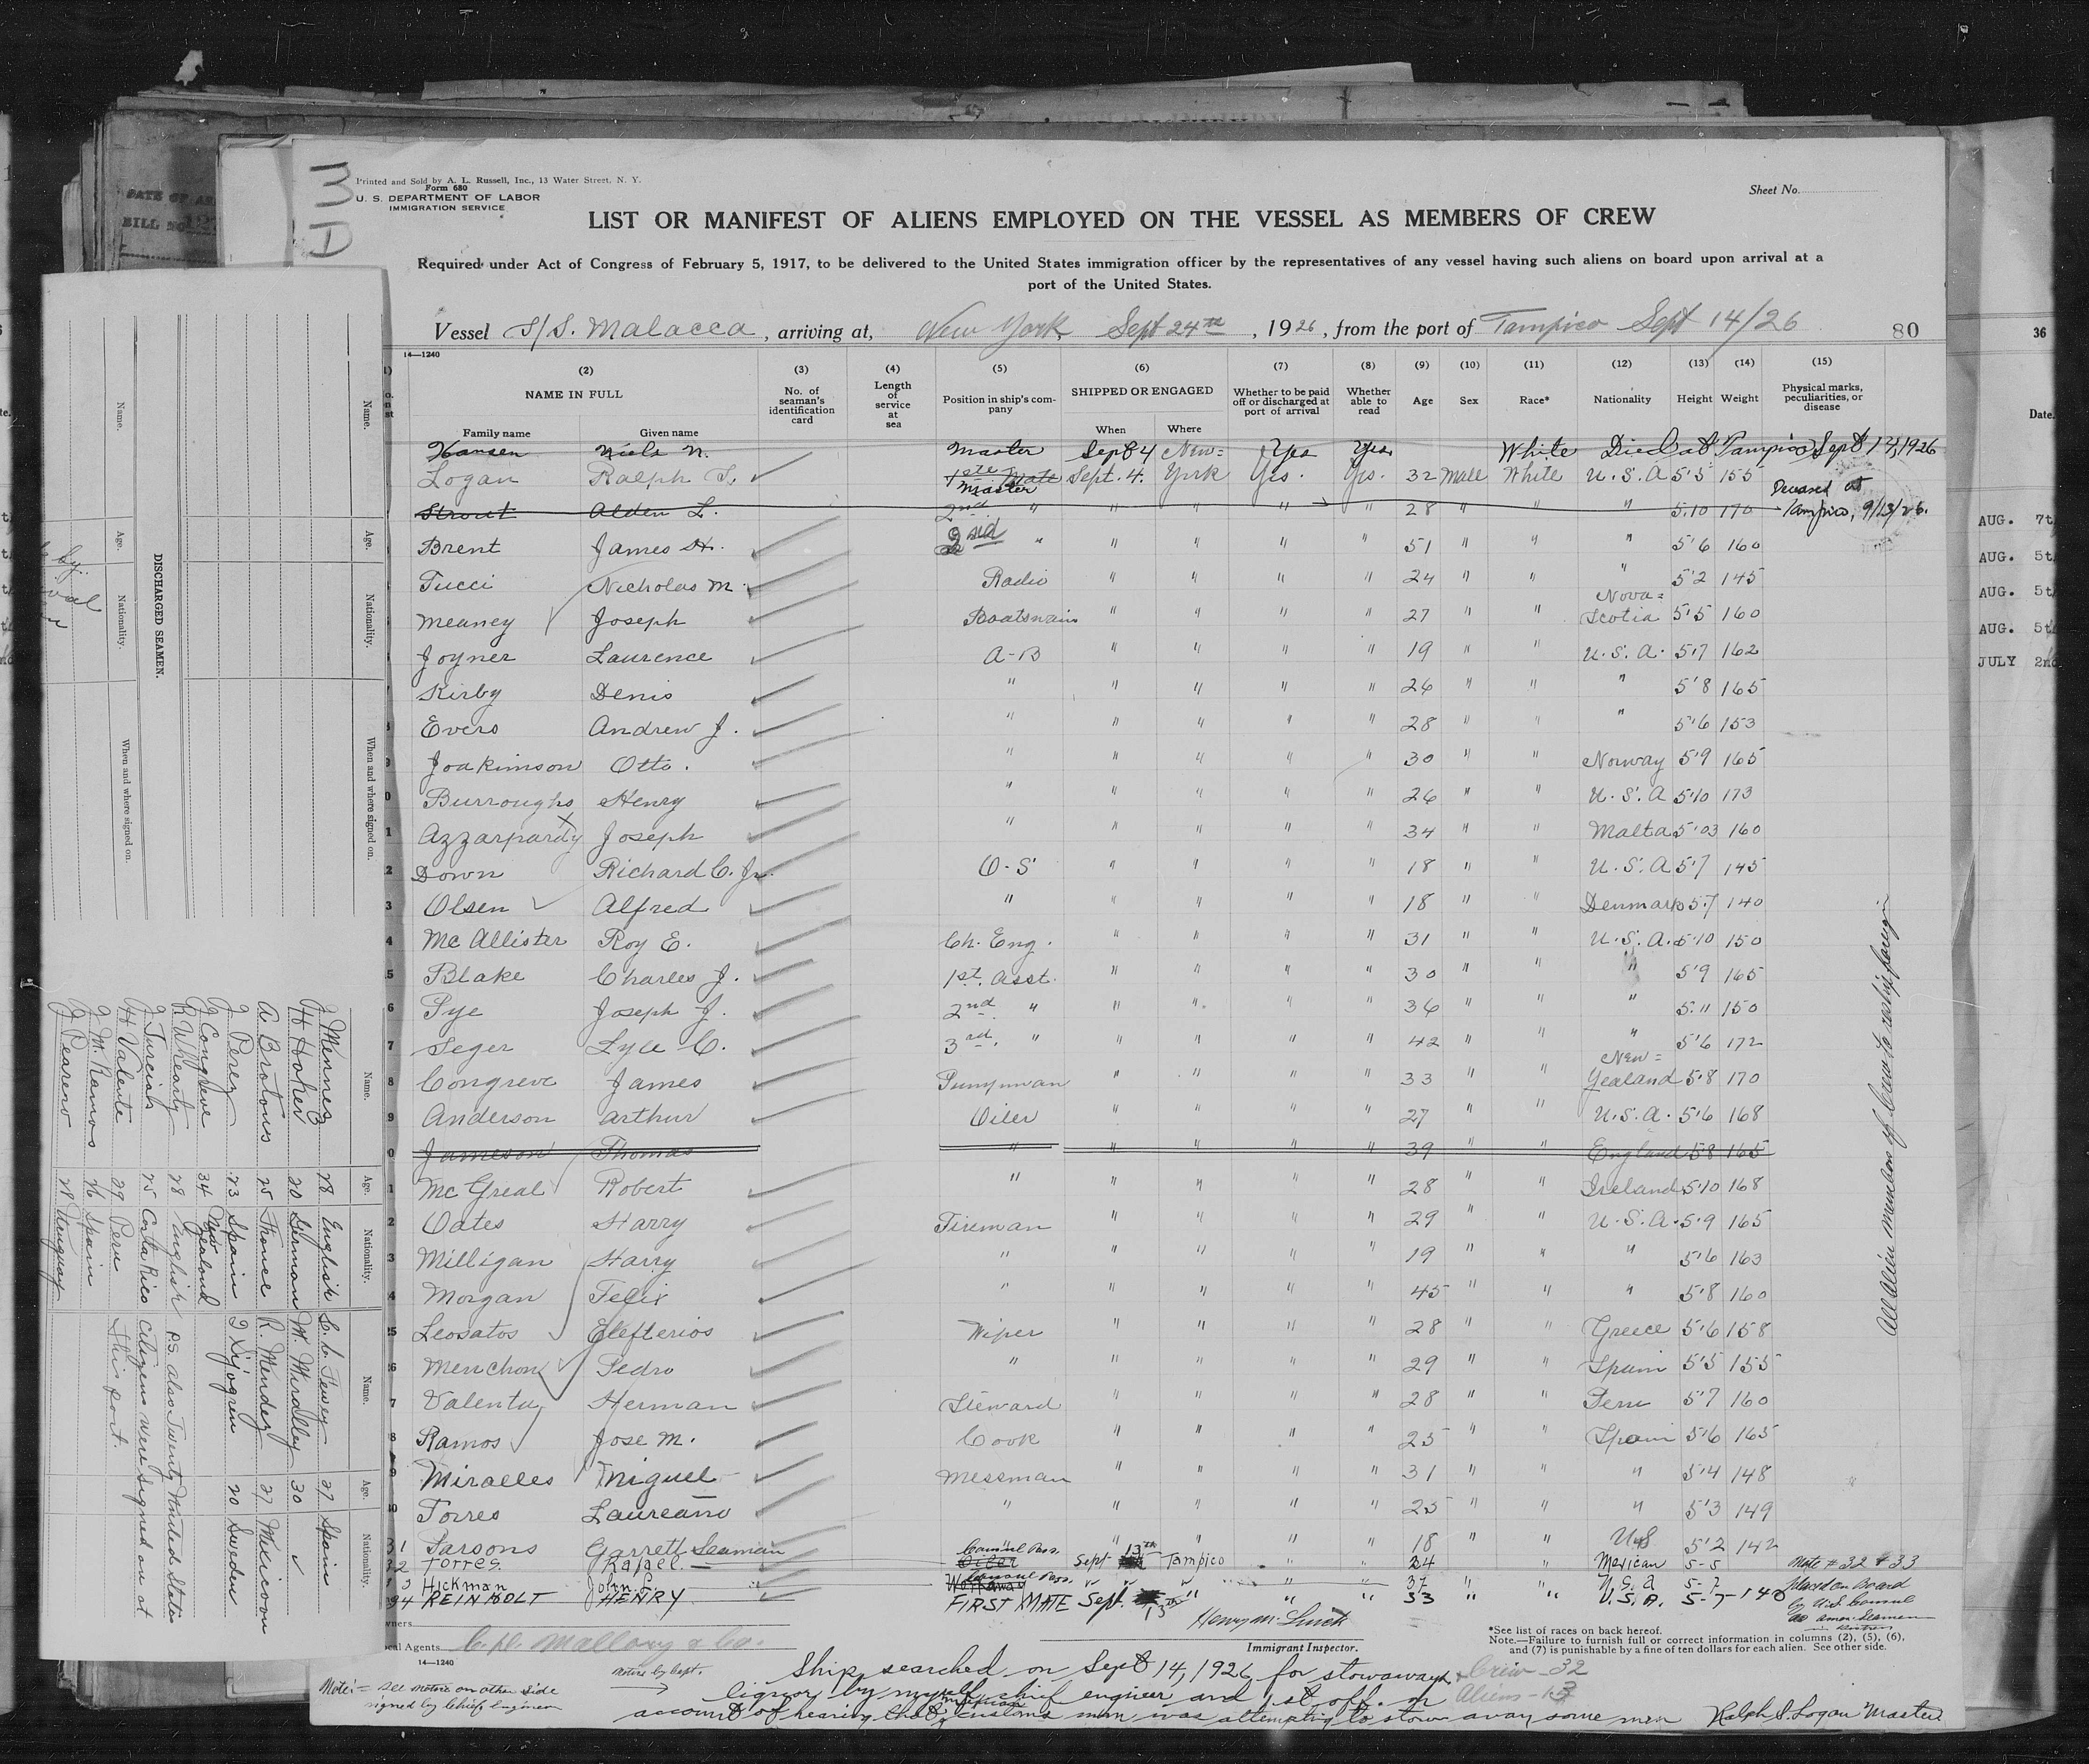 Printed and Sold by A. L. Russell, Inc., 13 Water Street, N. Y.
Form 680
U. S. DEPARTMENT OF LABOR
IMMIGRATION SERVICE
Sheet No.
LIST OR MANIFEST OF ALIENS EMPLOYED ON THE VESSEL AS MEMBERS OF CREW
Required under Act of Congress of February 5, 1917, to be delivered to the United States immigration officer by the representatives of any vessel having such aliens on board upon arrival at a
port of the United States.
Vessel S/S. Malacca, arriving at, New York, Sept 24th, 1926, from the port of Tampico Sept 14/26 80
14—1240
(2) (3) (4) (5) (6) (7) (8) (9) (10) (11) (12) (13) (14) (15)
NAME IN FULL No. of seaman's identification card Length of service at sea Position in ship's company SHIPPED OR ENGAGED Whether to be paid off or discharged at port of arrival Whether able to read Age Sex Race* Nationality Height Weight Physical marks, peculiarities, or disease
Family name Given name When Where
Hansen Niels N. Master Sept 4 New= Yes Yes White Died at Tampico Sept 13, 1926
Logan Ralph S. 1ste Mate Master Sept. 4. York Yes. Yes. 32 Male White U.S.A 5'5 155
Strout Alden L. 2nd " " " " " 28 " " " 5.10 170 Deceased at Tampico, 9/13/26.
Brent James H. 2nd " " " " " 51 " " " 5'6 160
Tucci Nicholas M. Radio " " " " 24 " " " 5'2 145
Meaney Joseph Boatswain " " " " 27 " " Nova= Scotia 5'5 160
Joyner Laurence A-B " " " " 19 " " U.S.A. 5'7 162
Kirby Denis " " " " " 26 " " " 5'8 165
Evers Andrew J. " " " " " 28 " " " 5'6 153
Joakimson Otto. " " " " " 30 " " Norway 5'9 165
Burroughs Henry " " " " " 26 " " U.S.A 5'10 173
Azzarpardy Joseph " " " " " 34 " " Malta 5'03 160
Down Richard C. Jr. O-S " " " " 18 " " U.S.A 5'7 145
Olsen Alfred " " " " " 18 " " Denmark 5'7 140
McAllister Roy E. Ch. Eng. " " " " 31 " " U.S.A. 5'10 150
Blake Charles J. 1st. Asst. " " " " 30 " " " 5'9 165
Pye Joseph J. 2nd " " " " " 36 " " " 5'11 150
Seger Lyle C. 3rd. " " " " " 42 " " " 5'6 172
Congreve James Pumpman " " " " 33 " " New= Zealand 5'8 170
Anderson Arthur Oiler " " " " 27 " " U.S.A. 5'6 168
Jameson Thomas " " " " " 39 " " England 5'8 165
McGreal Robert " " " " " 28 " " Ireland 5'10 168
Oates Harry Fireman " " " " 29 " " U.S.A. 5'9 165
Milligan Harry " " " " " 19 " " " 5'6 163
Morgan Felix " " " " " 45 " " " 5'8 160
Leosatos Elefterios Wiper " " " " 28 " " Greece 5'6 158
Menchon Pedro " " " " " 29 " " Spain 5'5 155
Valente Herman Steward " " " " 28 " " Peru 5'7 160
Ramos Jose M. Cook " " " " 25 " " Spain 5'6 165
Miralles Miguel Messman " " " " 31 " " " 5'4 148
Torres Laureano " " " " " 25 " " " 5'3 149
31 Parsons Garrett Seaman " " " " 18 " " US 5'2 142
32 Torres Rafael Oiler Consul Pass. Sept 13th Tampico " " 24 " Mexican 5-5 Note #32 & 33
Hickman John L. Workaway Consul Pass. " " " " 37 " " U.S.A 5-7 placed on Board
34 REINHOLT HENRY FIRST MATE Sept. 13th " " " 33 " " U.S.A. 5-7-140 by U.S. Consul
as Amer. Seamen
All Alien members of Crew to reship foreign
Henry M. Lurch
Immigrant Inspector.
Owners
Local Agents C. D. Mallory & Co.
*See list of races on back hereof.
Note.—Failure to furnish full or correct information in columns (2), (5), (6),
and (7) is punishable by a fine of ten dollars for each alien. See other side.
14—1240
Notice by Capt.
Note:= See notice on other side
signed by Chief Engineer
Ship searched on Sept 14, 1926 for stowaways &
liquor by myself, chief engineer and 1st off. on
account of hearing that Mexican customs man was attempting to stow away some men
Crew - 32
Aliens - 13
Ralph S. Logan Master
DISCHARGED SEAMEN.
Name. Age. Nationality. When and where signed on.
Name. Age. Nationality. When and where signed on.
Name. Age. Nationality. Name. Age. Nationality.
J Mennez 28 English C. C. Fewey 27 Spain
H Hoher 20 German W. Wirdlley 30
A Brotons 25 France R. Mendez 27 Mexican
J Perez 23 Spain J Sjogren 20 Sweden
J Congreve 34 New Zealand
R Whearty 28 English P.S. also Twenty United States
J Turcich 25 Costa Rico citizens were signed on at
H Valente 29 Peru this port.
J M. Ramos 26 Spain
J Pearero 28 Uruguay
36
Date.
AUG. 7t
AUG. 5t
AUG. 5t
AUG. 5t
JULY 2nd